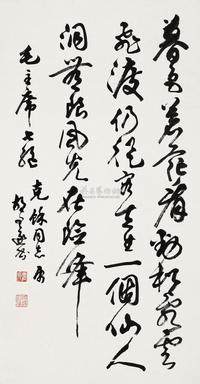 暮色蒼茫看勁松亂雲
飛渡仍從容天生一個仙人
洞無限風光在險峰
毛主席七绝
克 同志属